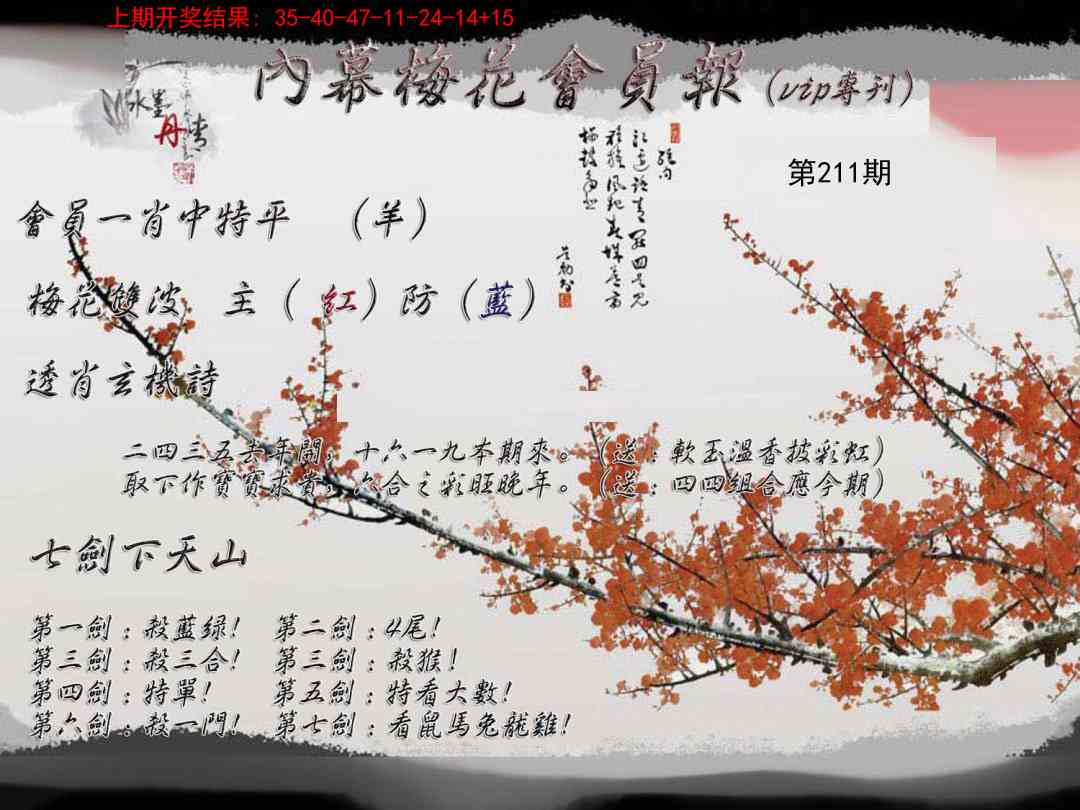 上期开奖结果: 35-40-47-11-24-14+15
內幕梅花會員報(vip專刊)
水墨
丹青
第211期
會員一肖中特平 (羊)
梅花雙波 主(紅)防(藍)
透肖玄機詩
二四三五去年開，十六一九本期來。(送:軟玉溫香披彩虹)
取下作寶寶求貴，六合之彩旺晚年。(送:四四組合應今期)
七劍下天山
第一劍:殺藍绿! 第二劍:4尾!
第三劍:殺三合! 第三劍:殺猴!
第四劍:特單! 第五劍:特看大數!
第六劍:殺一門! 第七劍:看鼠馬兔龍雞!